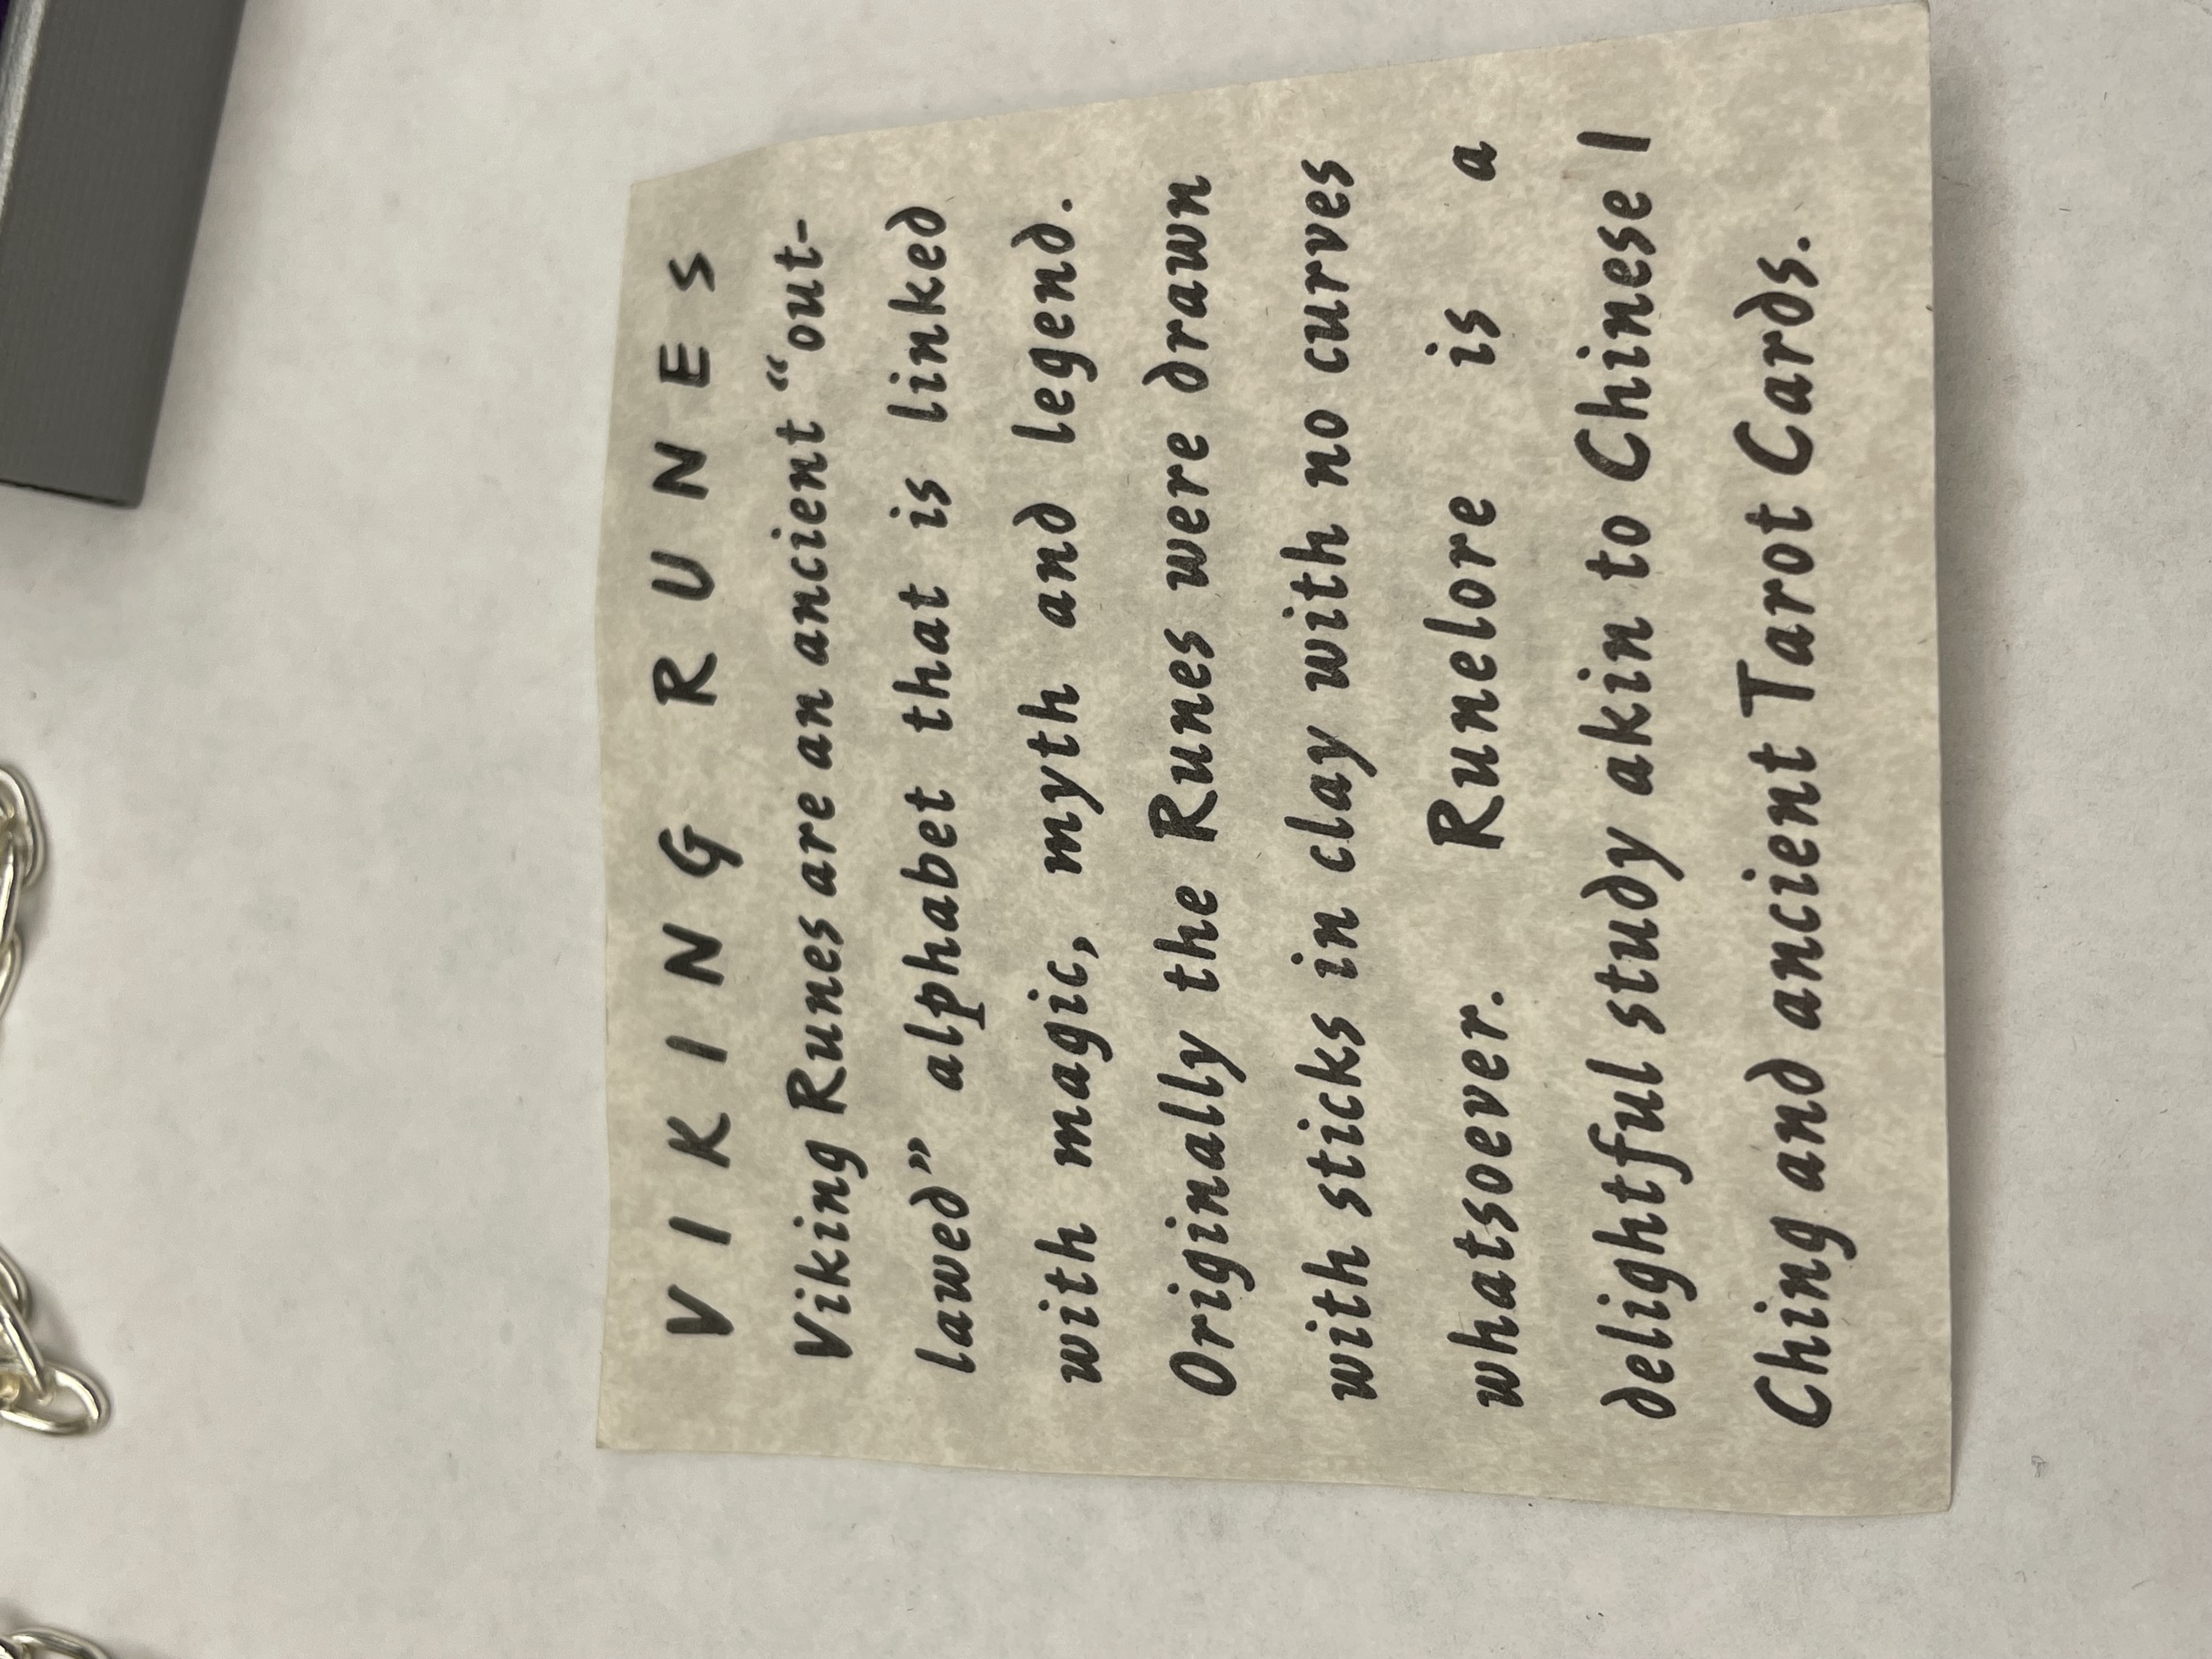 VIKING RUNES
Viking Runes are an ancient “out-
lawed” alphabet that is linked
with magic, myth and legend.
Originally the Runes were drawn
with sticks in clay with no curves
whatsoever. Runelore is a
delightful study akin to Chinese I
Ching and ancient Tarot Cards.